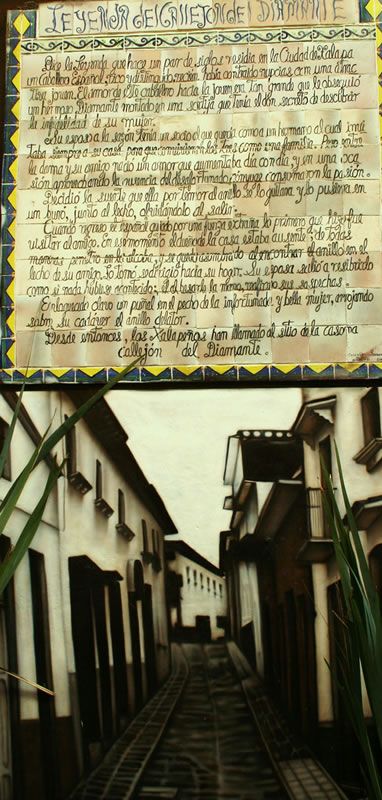 LEYENDA del CALLEJON del DIAMANTE
Dice la Leyenda que hace un par de siglos residia en la Ciudad de Xalapa
un Caballero Español, rico y de fina educación, había contraido nupcias con una dama
muy joven. El amor de este caballero hacia la joven era tan grande que le obsequió
un hermoso Diamante montado en una sortija que tenía el don secreto de descubrir
la infidelidad de su mujer.
Esta esposa a la según tenía un socio al que quería como a un hermano al cual invi
taba siempre a su casa para que convivieran los tres como una familia. Pero entre
la dama y su amigo nació un amor que aumentaba día con día, y en una oca
sión aprovechando la ausencia del ser consumaron la pasión.
Decidió la suerte que ella por temor al anillo se lo quitara y lo pusiera en
un buró, junto al lecho, olvidándolo al salir.
Cuando regresó el español guiado por una fuerza extraña lo primero que hizo fue
visitar al amigo. En ese momento el dueño de la casa estaba ausente de todas
maneras penetró en la alcoba, y se quedó asombrado al encontrar el anillo en el
lecho de su amigo. Lo tomó y partió hacia su hogar. Su esposa salió a recibirlo
como si nada hubiese acontecido. Al besarle la mano, confirmó sus sospechas.
Enfogonado clavó un puñal en el pecho de la infortunada y bella mujer, arrojando
sobre su cadaver el anillo delator.
Desde entonces, los Xalapeños han llamado al sitio de la casona
Callejón del Diamante.